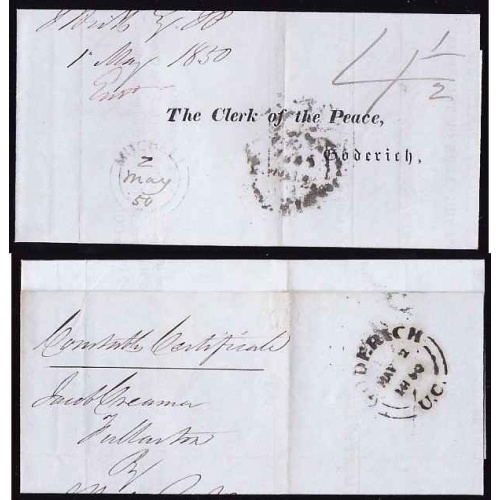 1st May 1850
4 1/2
The Clerk of the Peace,
Goderich,
MITCHELL
2
May
50
Constables Certificate
Jacob Creamer
Fullarton
By
GODERICH
MAY 2
1850
U.C.